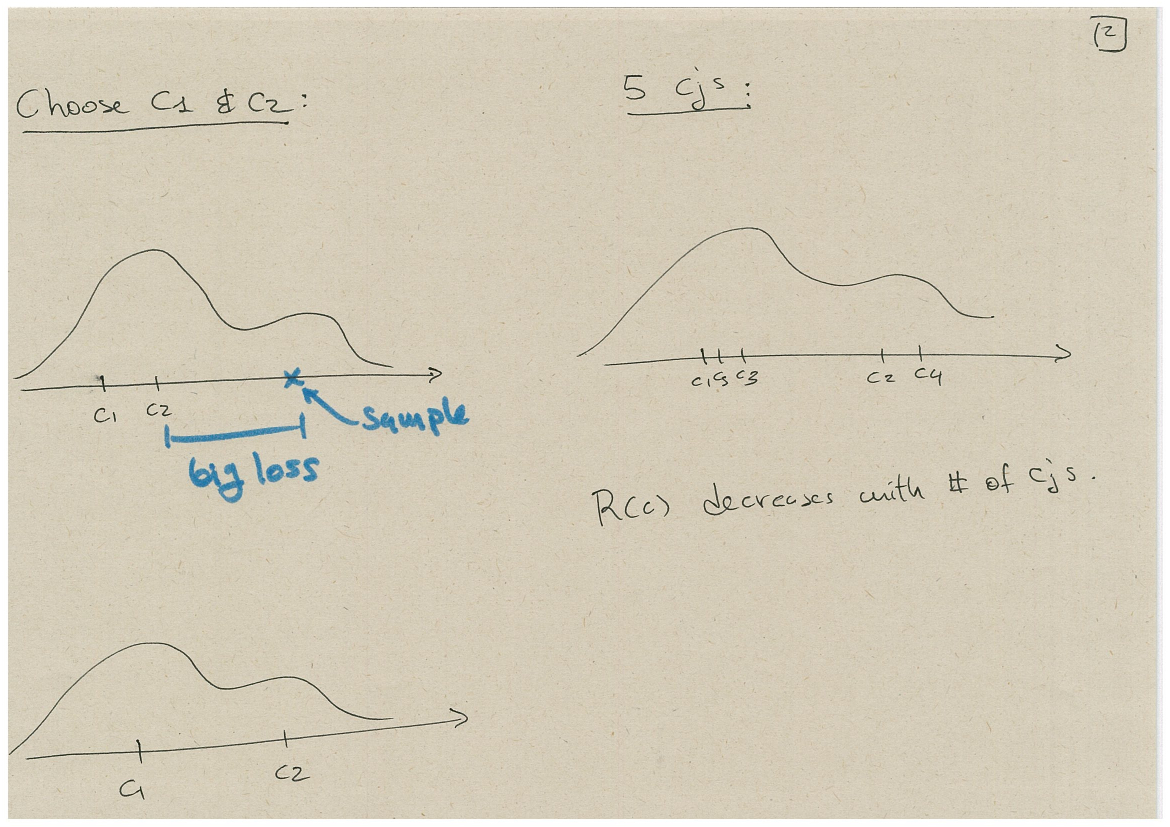 12
Choose C1 & C2:
C1 C2
sample
big loss
C1 C2
5 Cjs:
C1 C5 C3 C2 C4
R(c) decreases with # of Cjs.